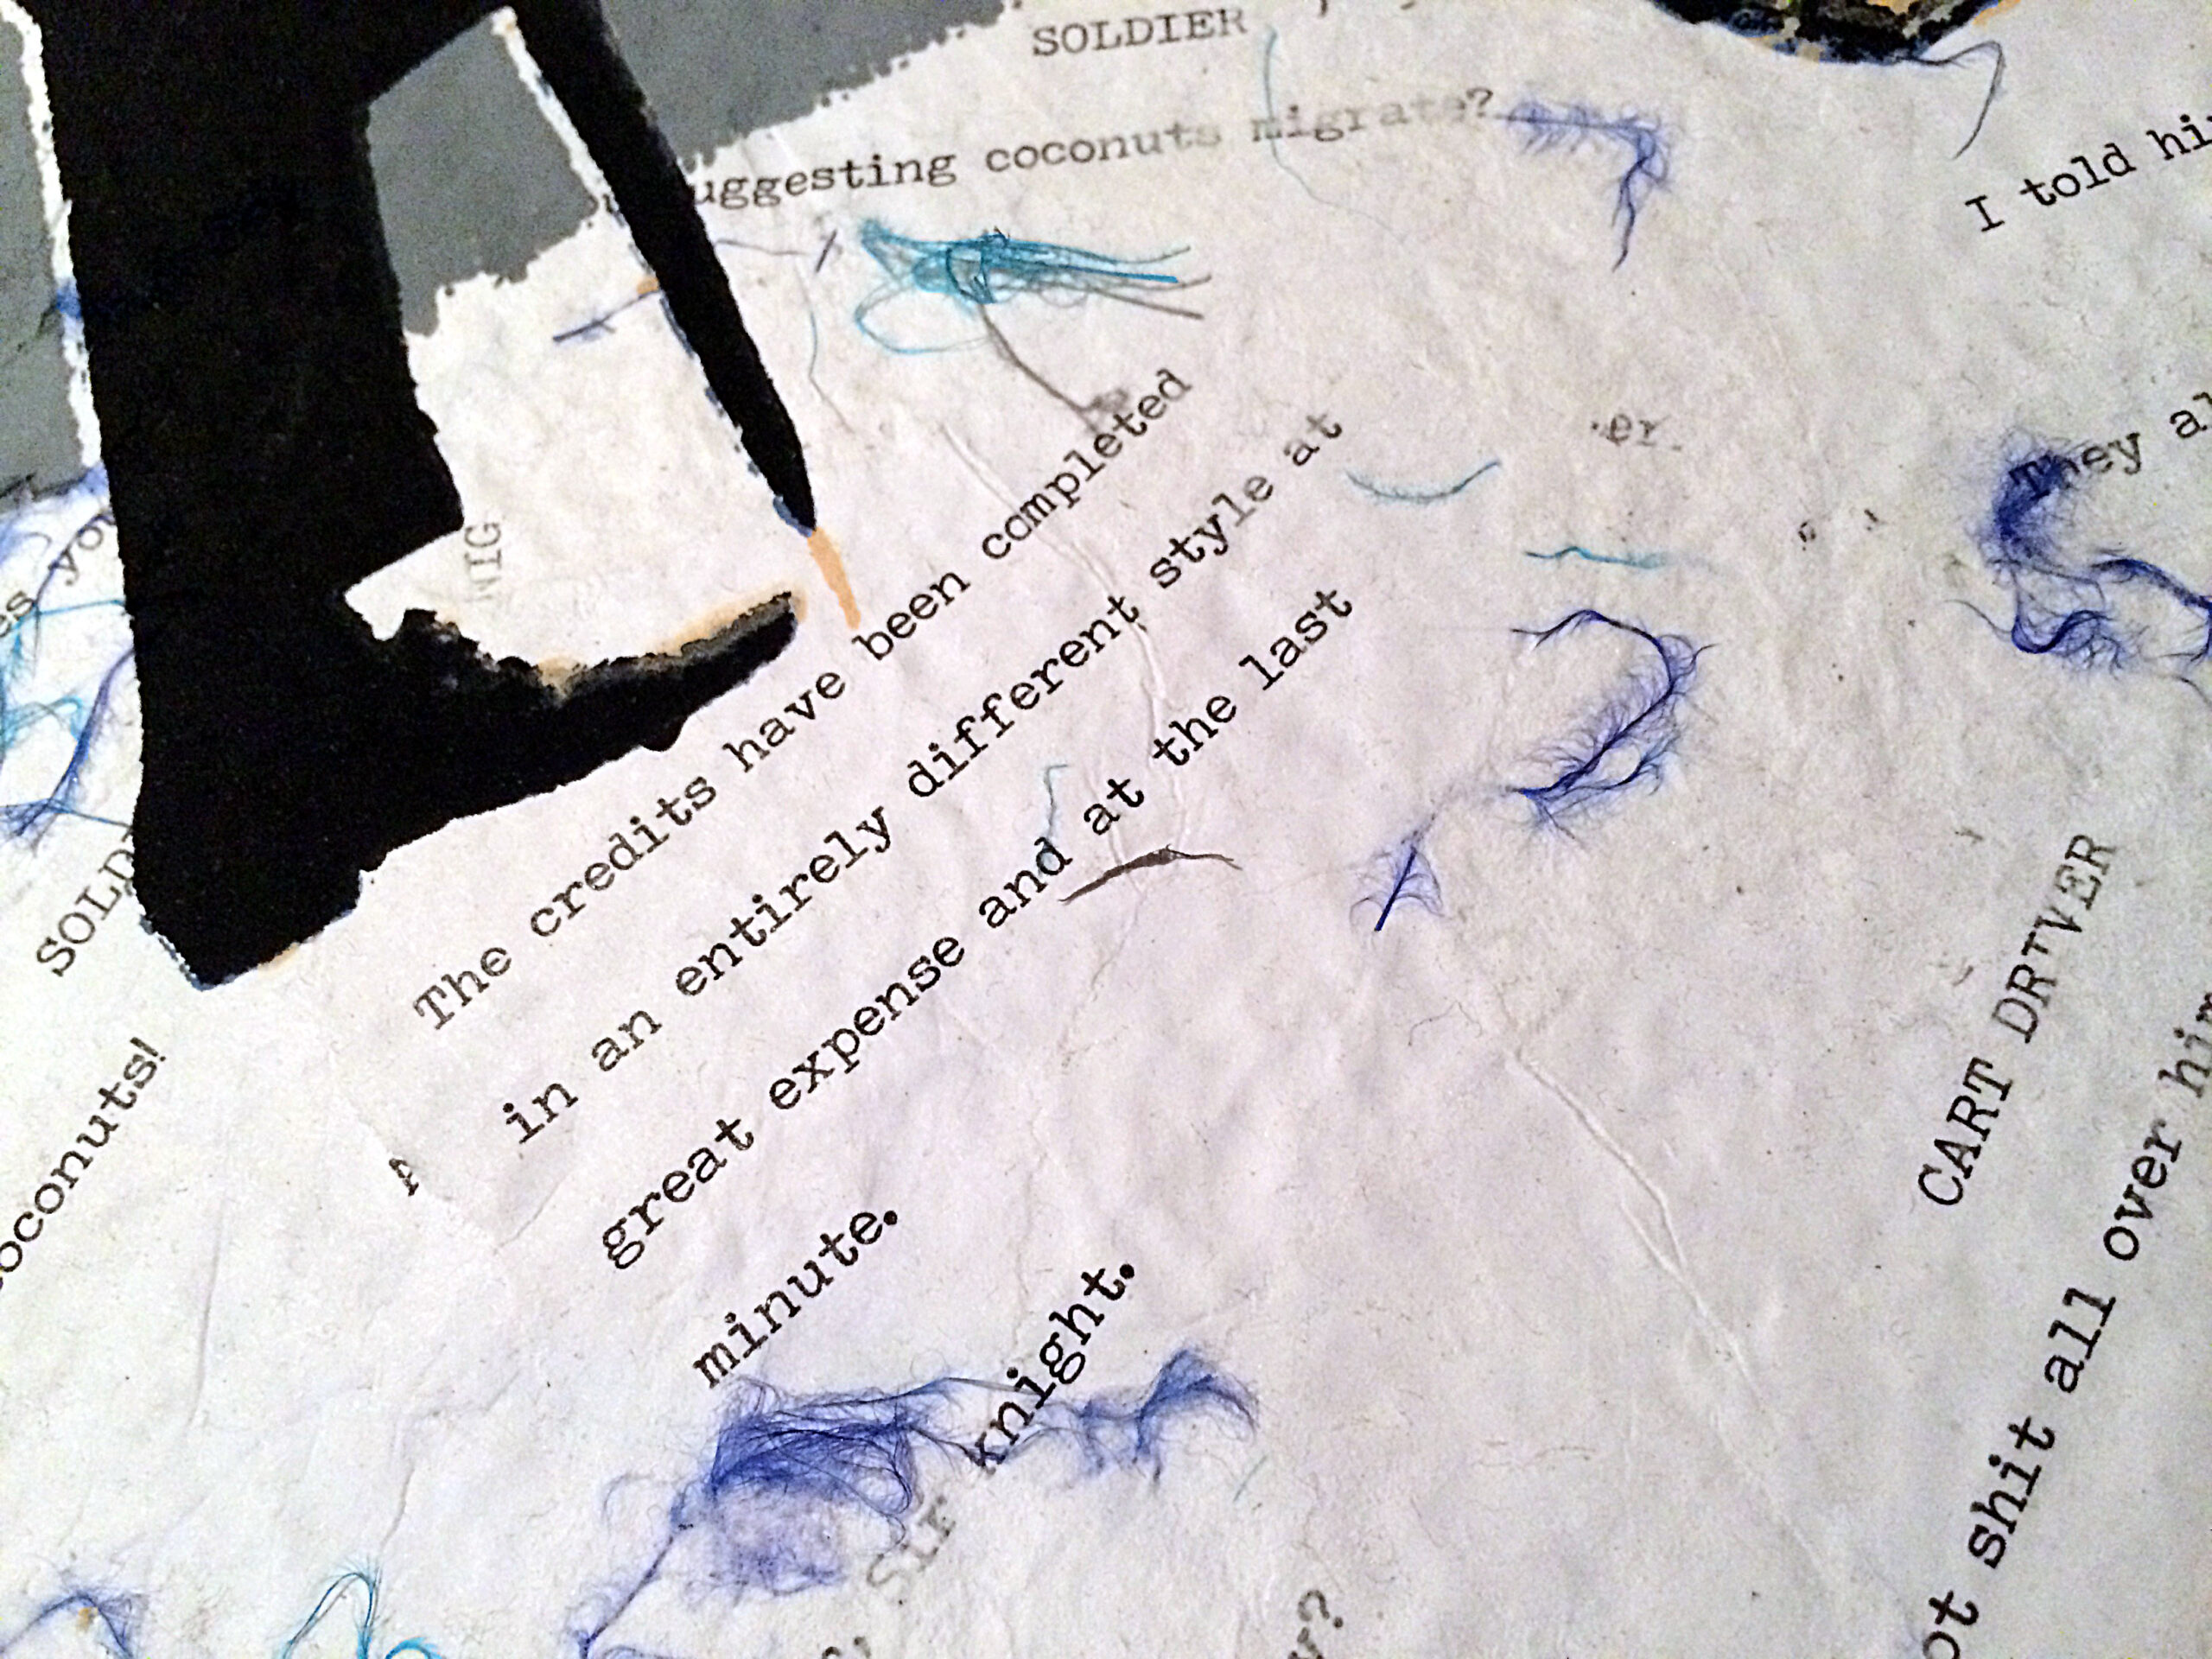 SOLDIER
uggesting coconuts migrate?
I told hi
They al
er.
es you
NIG
The credits have been completed
in an entirely different style at
great expense and at the last
minute.
SOLD
oconuts!
CART DRIVER
ot shit all over him
Sir knight.
?